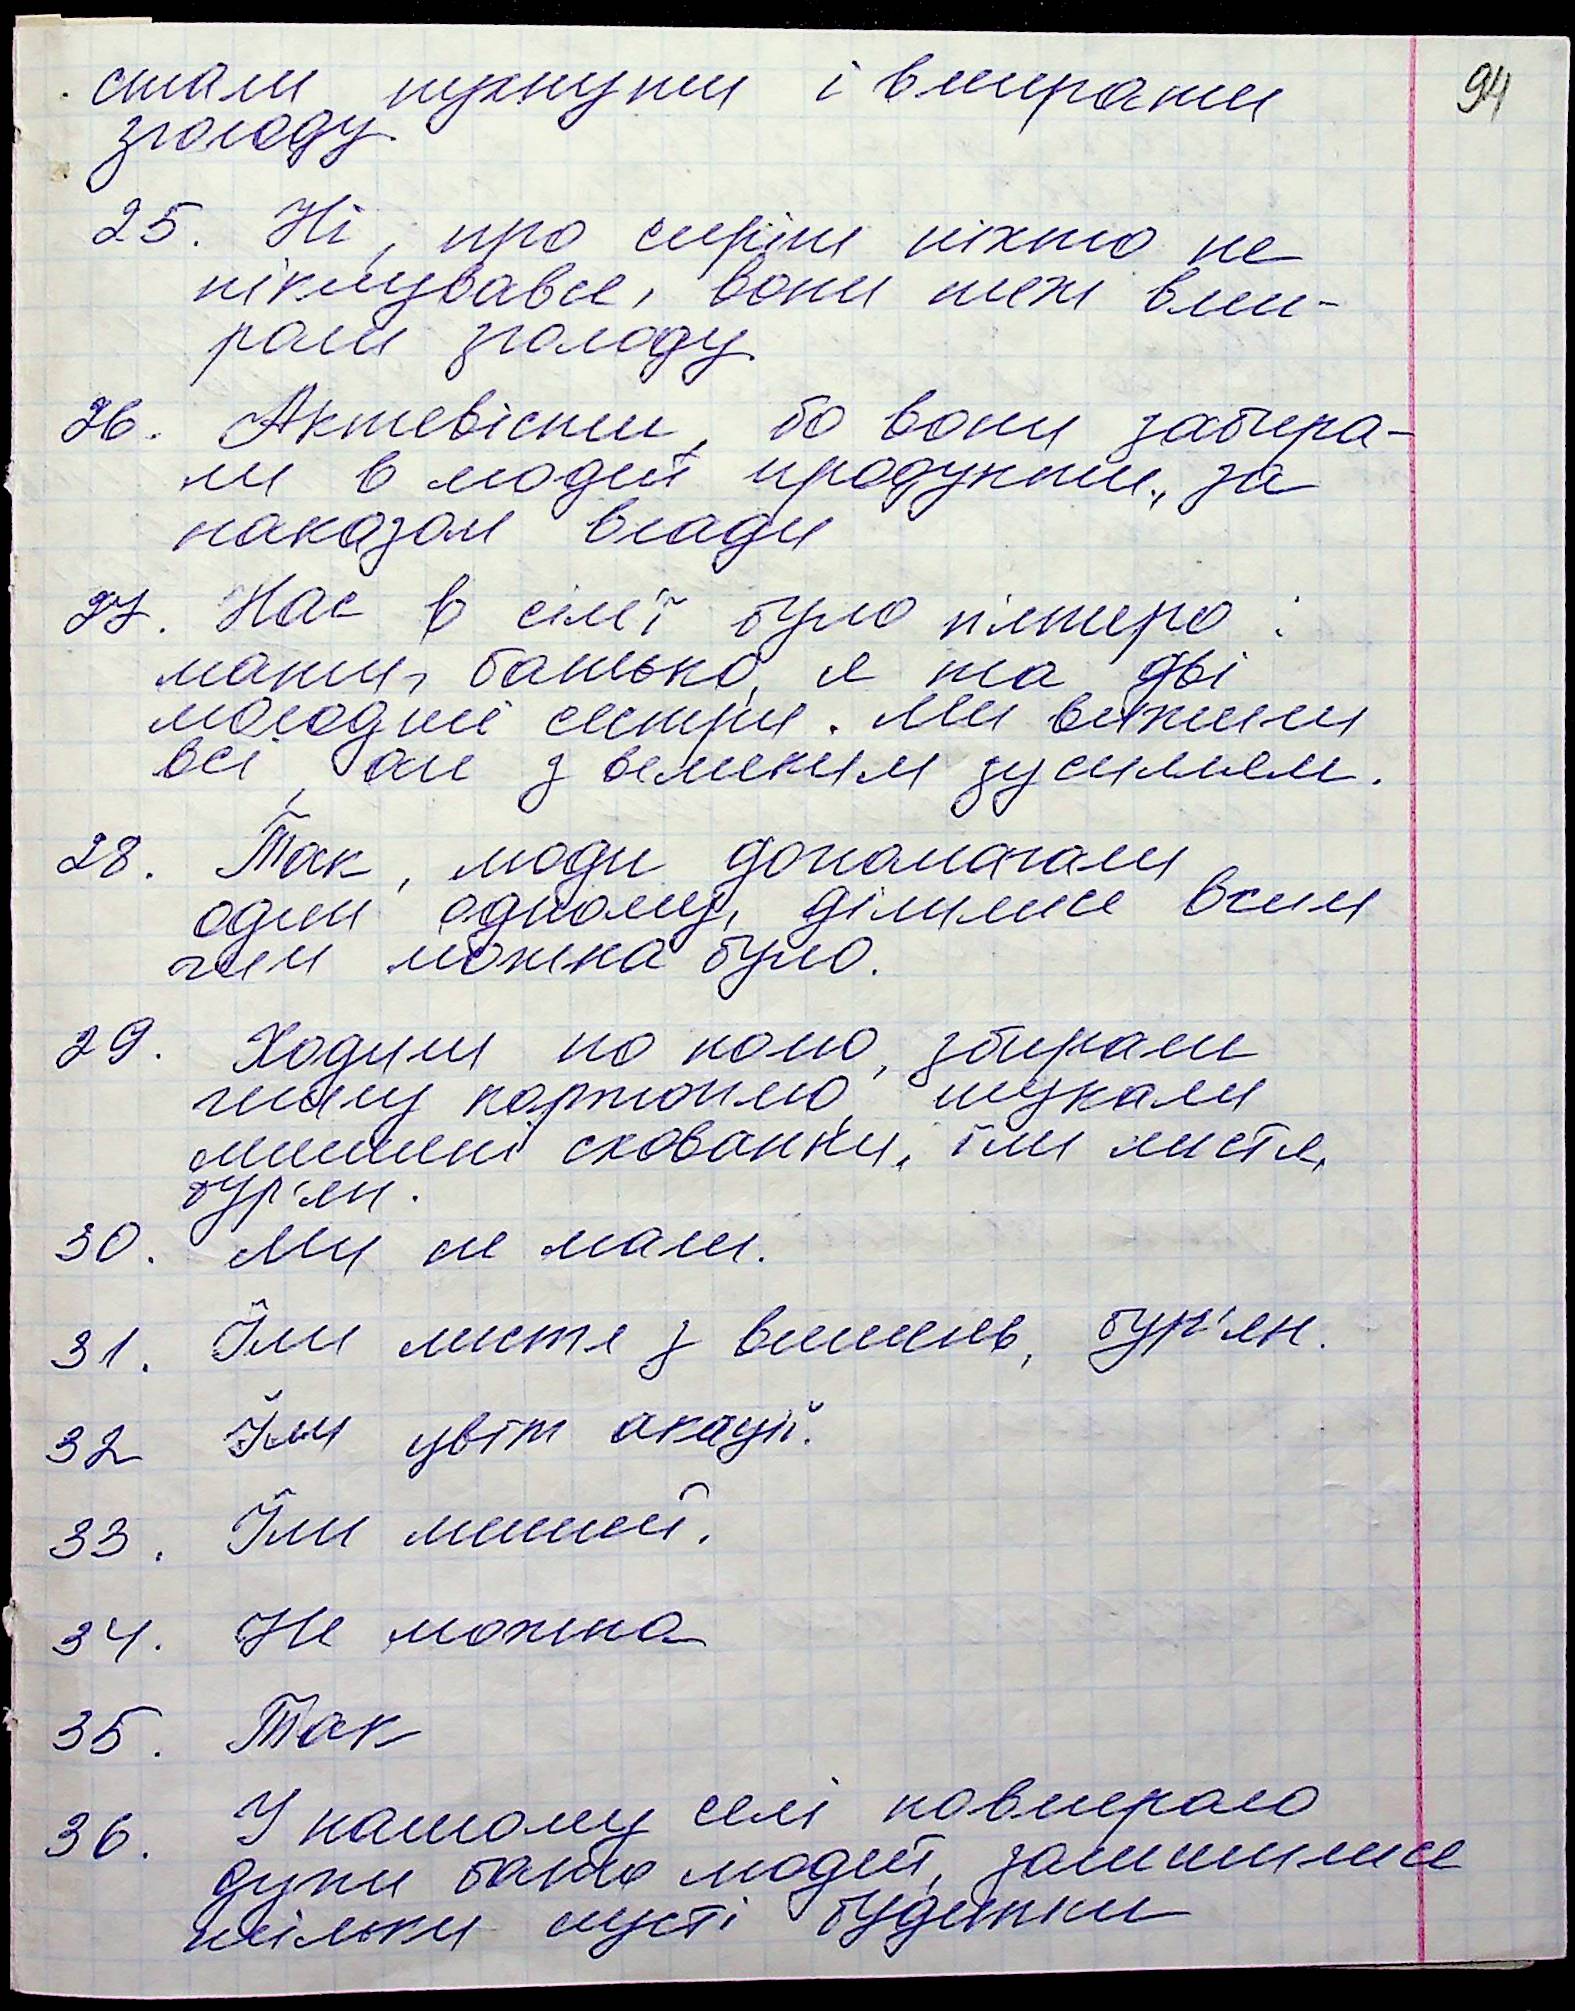 94
стали пухнути і вмирати
зголоду.
25. Ні, про сиріт ніхто не
піклувався, вони теж вми-
рали зголоду.
26. Актевісти, бо вони забира-
ли в людей продукти, за
наказом влади
27. Нас в сім'ї було п'ятеро:
мати, батько, я та дві
молодші сестри. Ми вижили
всі, але з великим зусиллям.
28. Так, люди допомагали
один одному, ділилися всим
чим можна було.
29. Ходили по полю, збирали
гнилу картоплю, шукали
мишині схованки, їли листя,
бур'ян.
30. Ми не мали.
31. Їли листя з вишень, бур'ян.
32 Їли цвіт акації.
33. Їли мишей.
34. Не можна
35. Так
36. У нашому селі повмерало
дуже багато людей, залишилися
тільки пусті будинки